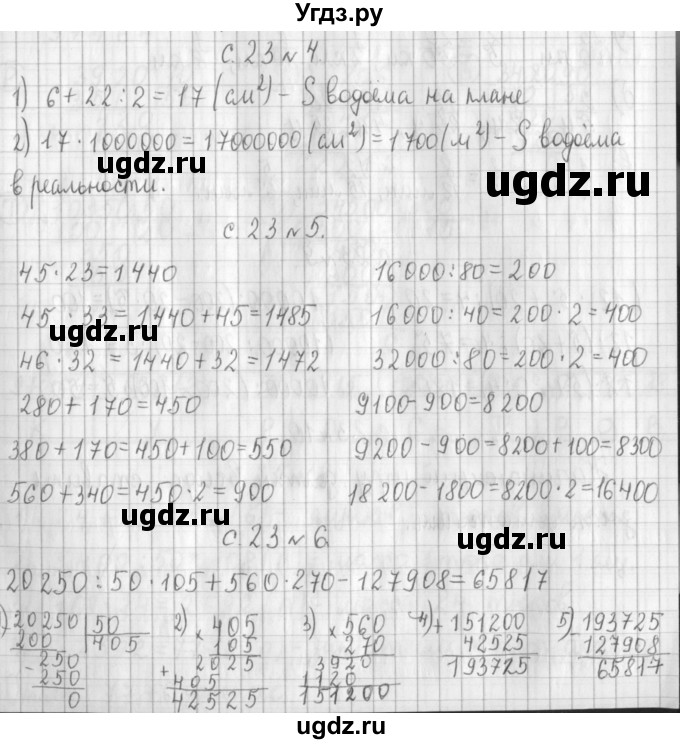 Угдз.ру
с. 23 № 4.
1) 6 + 22 : 2 = 17 (см²) – S водоёма на плане
2) 17 · 1000000 = 17000000 (см²) = 1700 (м²) – S водоёма
ugdz.ru
ugdz.ru
в реальности.
с. 23 № 5.
45 · 23 = 1440 16000 : 80 = 200
45 · 33 = 1440 + 45 = 1485 16000 : 40 = 200 · 2 = 400
ugdz.ru
46 · 32 = 1440 + 32 = 1472 32000 : 80 = 200 · 2 = 400
280 + 170 = 450 9100 - 900 = 8200
380 + 170 = 450 + 100 = 550 9200 - 900 = 8200 + 100 = 8300
560 + 340 = 450 · 2 = 900 18200 - 1800 = 8200 · 2 = 16400
ugdz.ru
ugdz.ru
с. 23 № 6
20250 : 50 · 105 + 560 · 270 - 127908 = 65817
1) 20250 | 50 2) × 405 3) × 560 4) + 151200 5) - 193725
200 405 105 270 42525 127908
- 250 2025 3920 193725 65817
250 + 405 1120
0 42525 151200
ugdz.ru
ugdz.ru